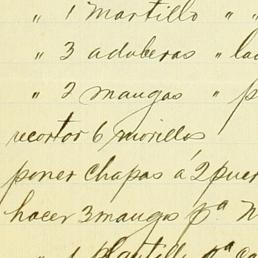 " 1 martillo " "
" 3 adoberas " la
" 2 mangas " p
recortar 6 morillos
poner chapas á 2 puer
hacer 3 mangos pª M
" 1 plantilla pª ca